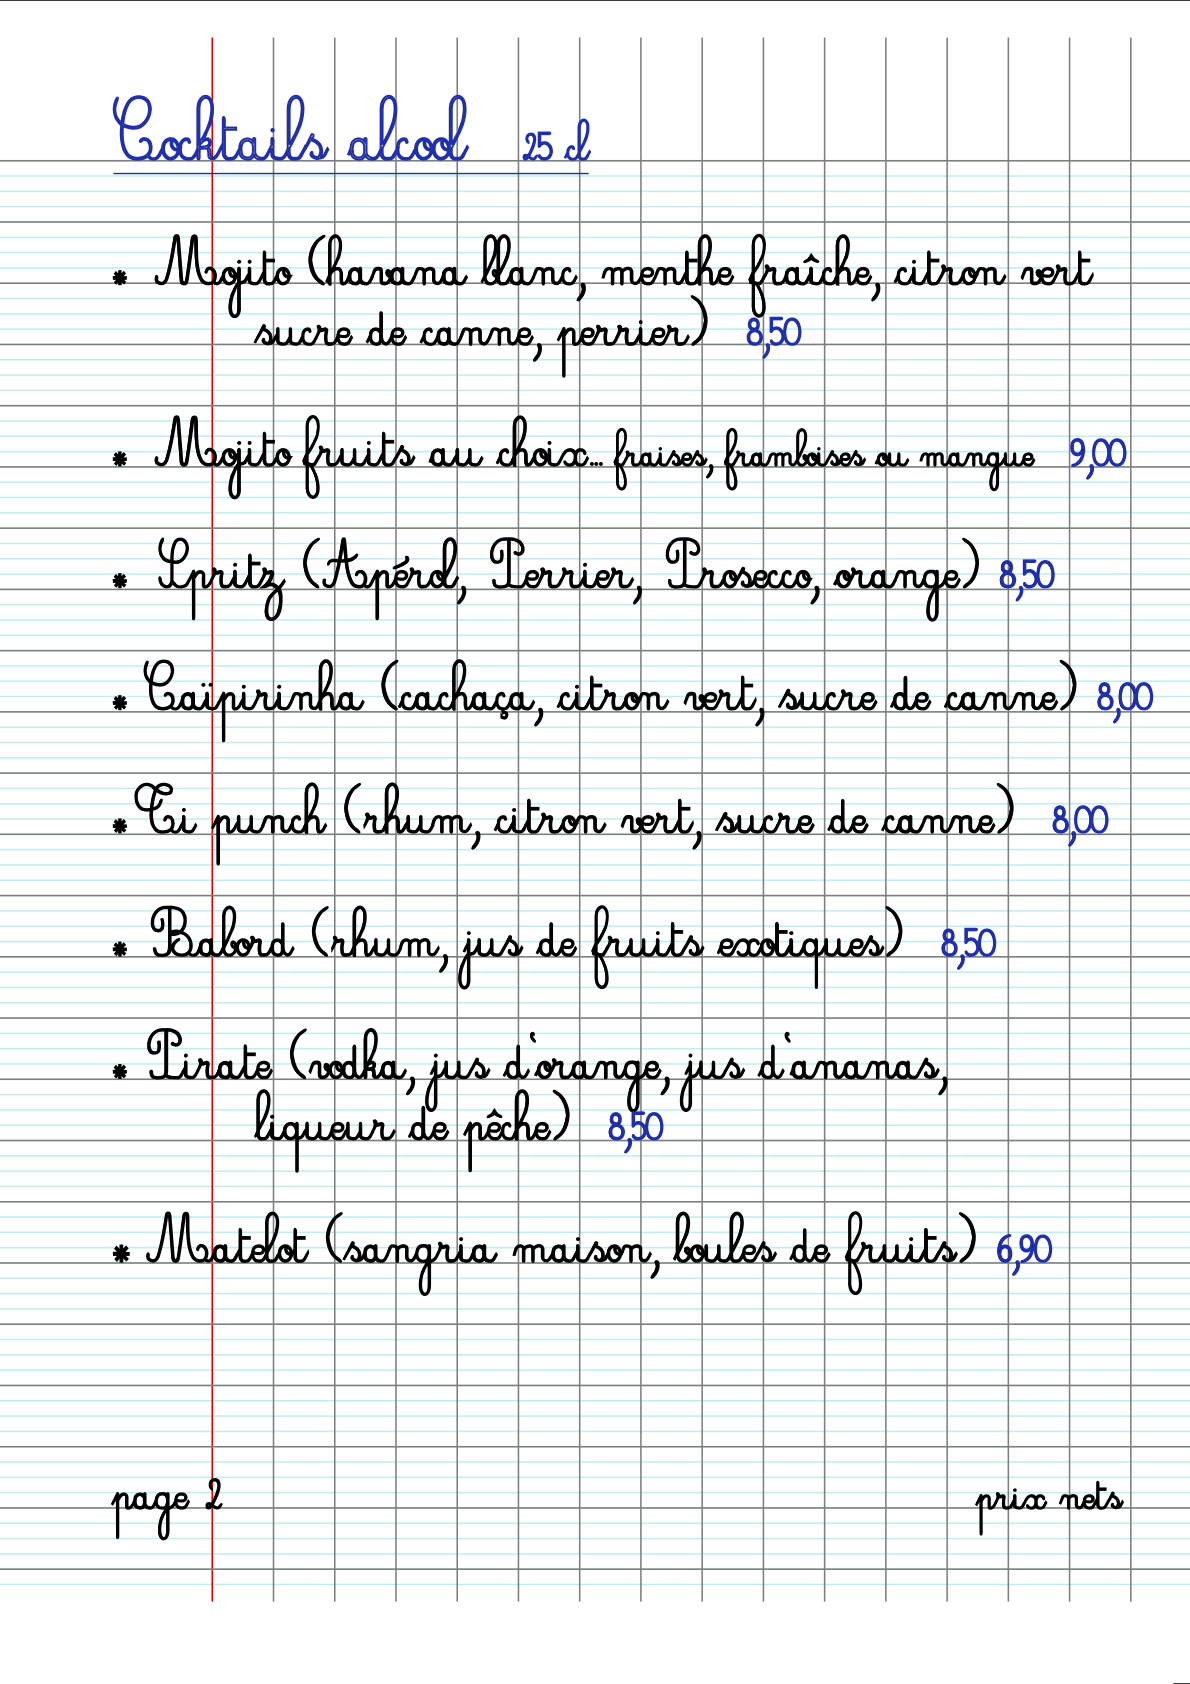 Cocktails alcool 25 cl
* Mojito (havana blanc, menthe fraîche, citron vert
sucre de canne, perrier) 8,50
* Mojito fruits au choix... fraises, framboises ou mangue 9,00
* Spritz (Apérol, Perrier, Prosecco, orange) 8,50
* Caïpirinha (cachaça, citron vert, sucre de canne) 8,00
* Ti punch (rhum, citron vert, sucre de canne) 8,00
* Babord (rhum, jus de fruits exotiques) 8,50
* Pirate (vodka, jus d'orange, jus d'ananas,
liqueur de pêche) 8,50
* Matelot (sangria maison, boules de fruits) 6,90
page 2 prix nets